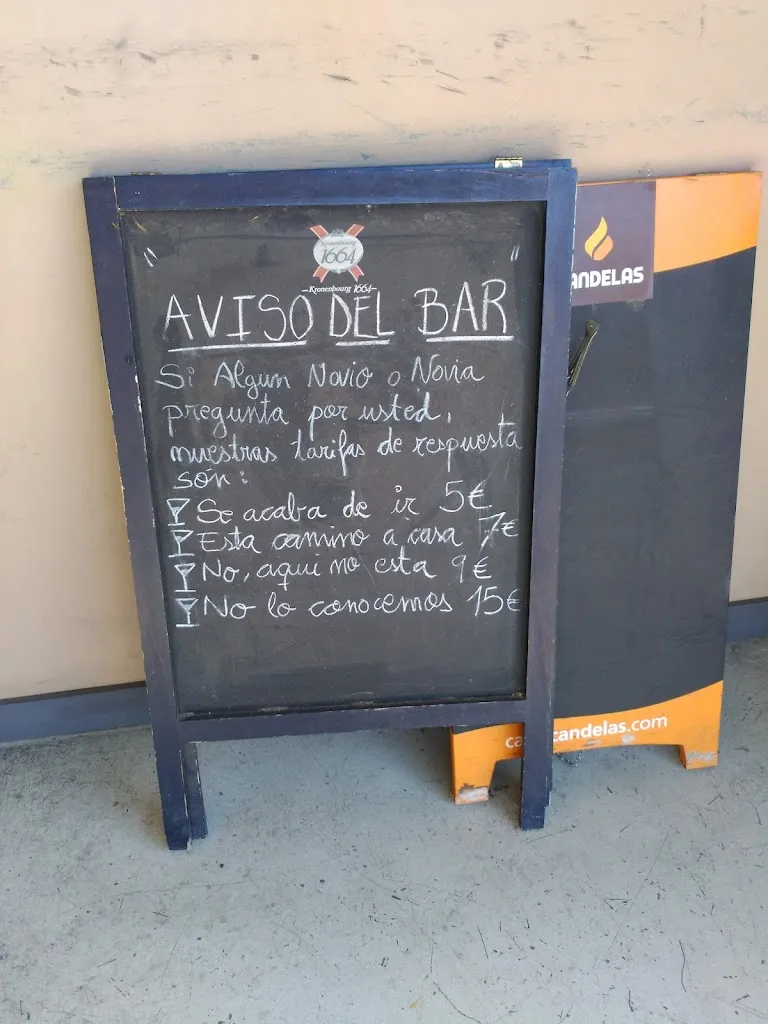 Kronenbourg
1664
Kronenbourg 1664
" "
AVISO DEL BAR
Si Algun Novio o Novia
pregunta por usted,
nuestras tarifas de respuesta
són:
Se acaba de ir 5€
Esta camino a casa 7€
No, aqui no esta 9€
No lo conocemos 15€
ANDELAS
ca candelas.com